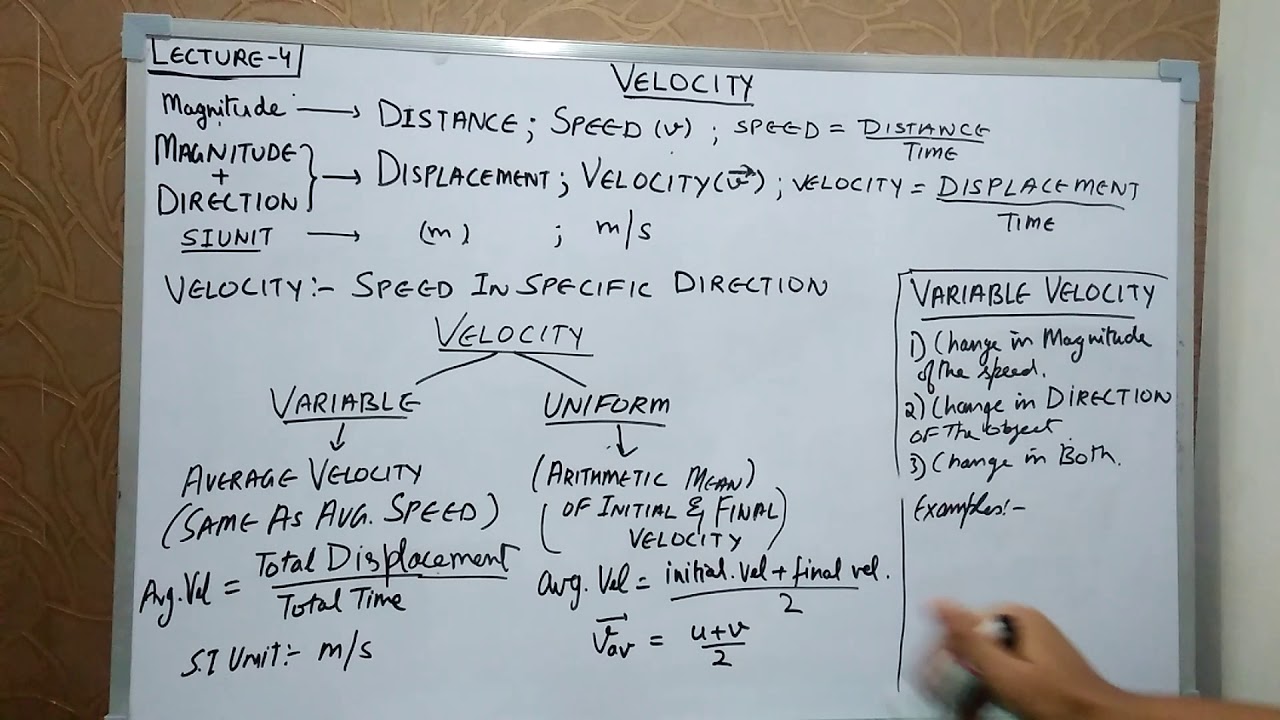 LECTURE-4
VELOCITY
Magnitude → DISTANCE; SPEED (v) ; SPEED = DISTANCE / TIME
MAGNITUDE + DIRECTION } → DISPLACEMENT; VELOCITY (v⃗) ; VELOCITY = DISPLACEMENT / TIME
SIUNIT → (m) ; m/s
VELOCITY:- SPEED IN SPECIFIC DIRECTION
VELOCITY
VARIABLE
↓
AVERAGE VELOCITY
(SAME AS AVG. SPEED)
Avg.Vel = Total Displacement / Total Time
S.I Unit:- m/s
UNIFORM
↓
(ARITHMETIC MEAN)
(OF INITIAL & FINAL
VELOCITY)
avg. Vel = initial. vel + final vel. / 2
v⃗av = u+v / 2
VARIABLE VELOCITY
1) Change in Magnitude
of the speed.
2) Change in DIRECTION
OF The object.
3) Change in Both.
Examples:-